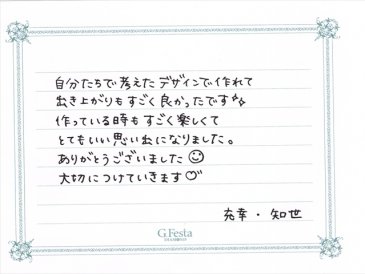 自分たちで考えたデザインで作れて
出き上がりもすごく良かったです✨
作っている時もすごく楽しくて
とてもいい思い出になりました。
ありがとうございました☺
大切につけていきます♡
充幸・知世
G.Festa
DIAMOND